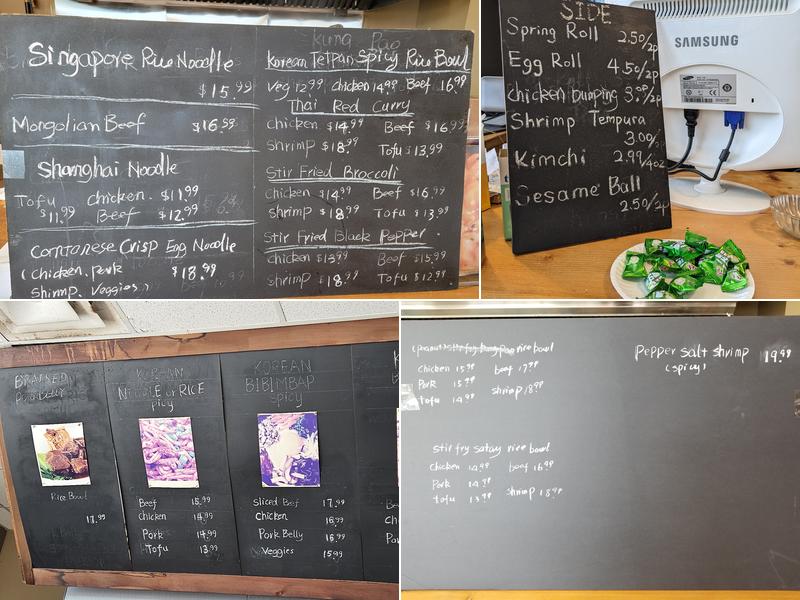 Singapore Rice Noodle
$15.99
Mongolian Beef $16.99
Shanghai Noodle
Tofu $11.99 chicken. $11.99
Beef $12.99
Cantonese Crisp Egg Noodle
(chicken. pork $18.99
shrimp. veggies)
Kung Pao
Korean Teipan Spicy Rice Bowl
Veg 12.99 chicken 14.99 Beef 16.99
Thai Red Curry
chicken $14.99 Beef $16.99
shrimp $18.99 Tofu $13.99
Stir Fried Broccoli
chicken $14.99 Beef $16.99
shrimp $18.99 Tofu $13.99
Stir Fried Black Pepper
chicken $13.99 Beef $15.99
shrimp $18.99 Tofu $12.99
SIDE
Spring Roll 2.50/2p
Egg Roll 4.50/2p
chicken Dumping
Shrimp Tempura
3.00/
Kimchi 2.99/4oz
Sesame Ball
2.50/2p
SAMSUNG
BRAISED
Rice Bowl
KOREAN
NOODLE or RICE
spicy
Beef 15.99
Chicken 14.99
Pork 14.99
Tofu 13.99
KOREAN
BIBIMBAP
spicy
Sliced Beef 17.99
Chicken 16.99
Pork Belly 16.99
Veggies 15.99
(peanut) stir fry kung pao rice bowl
chicken 15.99 beef 17.99
Pork 15.99 shrimp 18.99
tofu 14.99
stir fry satay rice bowl
chicken 14.99 beef 16.99
Pork 14.99
tofu 13.99 shrimp 18.99
Pepper salt shrimp 19.99
(spicy)